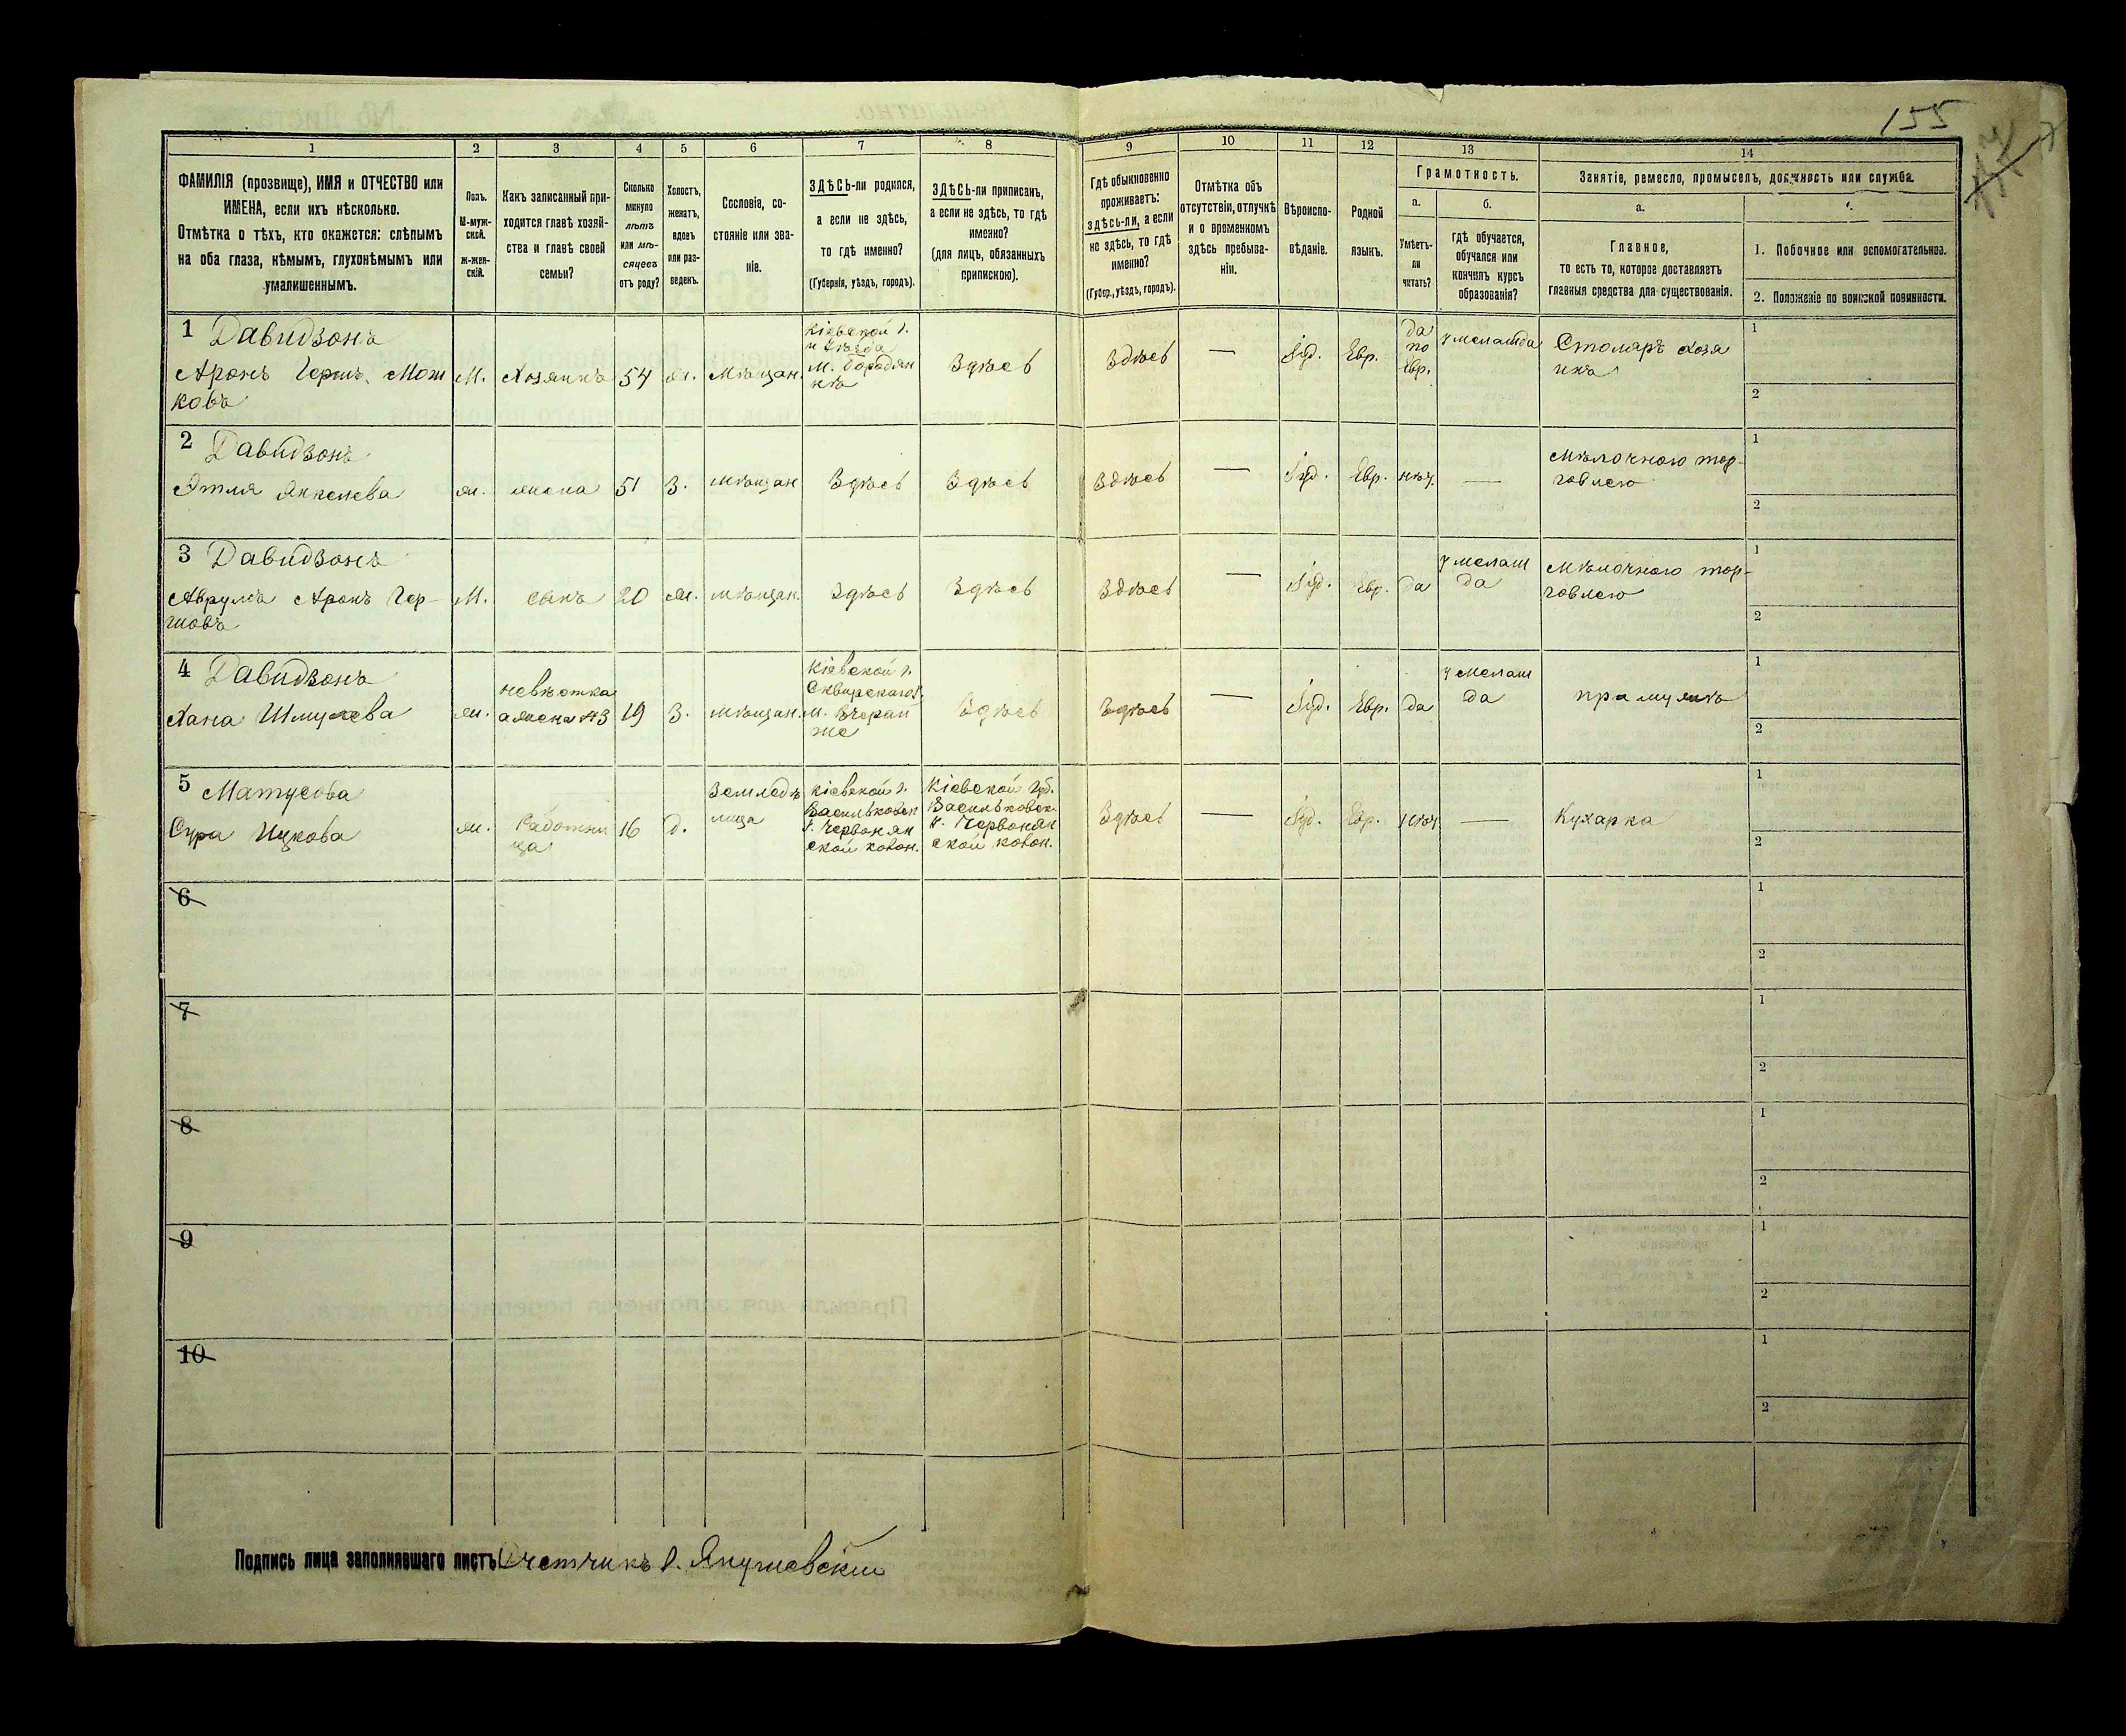 155
1 2 3 4 5 6 7 8 9 10 11 12 13 14
ФАМИЛІЯ (прозвище), ИМЯ и ОТЧЕСТВО или
ИМЕНА, если ихъ нѣсколько.
Отмѣтка о тѣхъ, кто окажется: слѣпымъ
на оба глаза, нѣмымъ, глухонѣмымъ или
умалишеннымъ.
Полъ.
М-муж-
ской.
Ж-жен-
скій.
Какъ записанный при-
ходится главѣ хозяй-
ства и главѣ своей
семьи?
Сколько
минуло
лѣтъ
или мѣ-
сяцевъ
отъ роду?
Холостъ,
женатъ,
вдовъ
или раз-
веденъ.
Сословіе, со-
стояніе или зва-
ніе.
ЗДѢСЬ-ли родился,
а если не здѣсь,
то гдѣ именно?
(Губернія, уѣздъ, городъ).
ЗДѢСЬ-ли приписанъ,
а если не здѣсь, то гдѣ
именно?
(для лицъ, обязанныхъ
припискою).
Гдѣ обыкновенно
проживаетъ:
здѣсь-ли, а если
не здѣсь, то гдѣ
именно?
(Губер., уѣздъ, городъ).
Отмѣтка объ
отсутствіи, отлучкѣ
и о временномъ
здѣсь пребыва-
ніи.
Вѣроиспо-
вѣданіе.
Родной
языкъ.
Грамотность.
а.
Умѣетъ-
ли
читать?
б.
гдѣ обучается,
обучался или
кончилъ курсъ
образованія?
Занятіе, ремесло, промыселъ, должность или служба.
а.
Главное,
то есть то, которое доставляетъ
главныя средства для существованія.
1. Побочное или вспомогательное.
2. Положеніе по воинской повинности.
1 Давидзонъ
Аронъ Гершъ Мош
ковъ
М.
Хозяинъ
54
ж.
Мѣщан.
Кіевской г.
и уѣзда
м. Бородян
кѣ
Здѣсь
Здѣсь
—
Іуд.
Евр.
да
по
Евр.
у меламда
Столяръ хозя
инъ
1
2
2 Давидзонъ
Этля Янкелева
ж.
жена
51
З.
мѣщан
Здѣсь
Здѣсь
Здѣсь
—
Іуд.
Евр.
нѣт.
—
Мѣлочною тор-
говлею
1
2
3 Давидзонъ
Аврумъ Аронъ Гер-
шовъ
М.
сынъ
20
ж.
мѣщан.
Здѣсь
Здѣсь
Здѣсь
—
Іуд.
Евр.
да
у мелам
да
Мѣлочною тор-
говлею
1
2
4 Давидзонъ
Хана Шмулева
ж.
невѣстка
а жена №3
19
З.
мѣщан.
Кіевской г.
Сквирскаго у.
м. Вчерай
ше
Здѣсь
Здѣсь
—
Іуд.
Евр.
да
у мелам
да
при мужѣ
1
2
5 Матусова
Сура Ицкова
ж.
Работни
ца
16
д.
Земледѣ
лица
Кіевской г.
Васильковск
у. Червонян
ской колон.
Кіевской губ.
Васильковск.
у. Червонян
ской колон.
Здѣсь
—
Іуд.
Евр.
нѣт
—
Кухарка
1
2
6
1
2
7
1
2
8
1
2
9
1
2
10
1
2
Подпись лица заполнявшаго листъ Счетчикъ Янушевскій